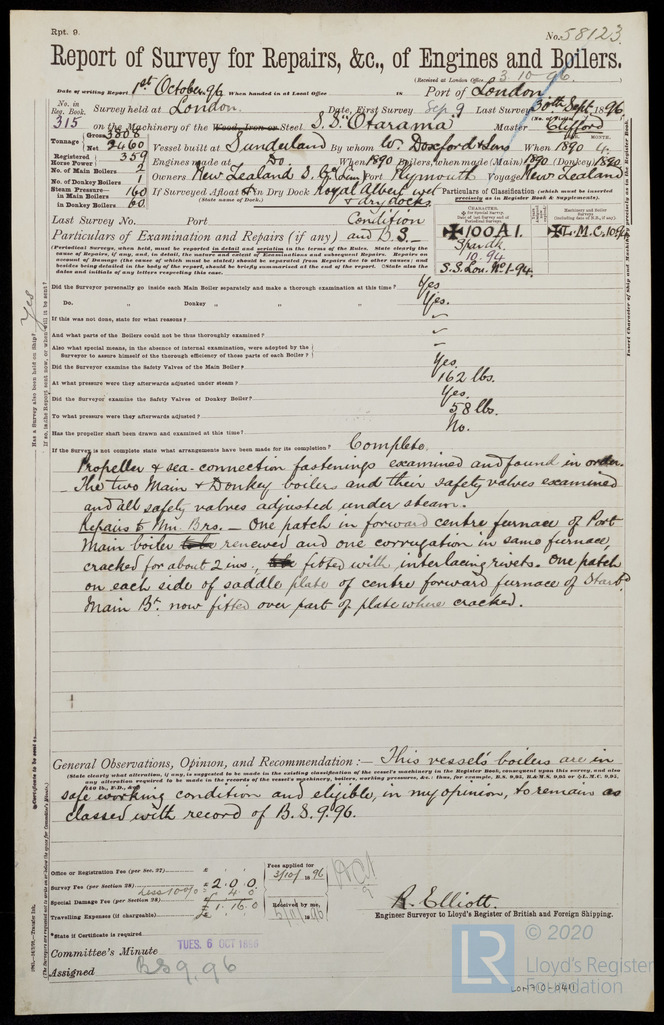 Rpt. 9.
No. 58123
Report of Survey for Repairs, &c., of Engines and Boilers.
(Received at London Office 3.10.96.)
Date of writing Report 1st October 96 When handed in at Local Office 18 Port of London
No. in Reg. Book. Survey held at London. Date, First Survey Sep 9 Last Survey 30th Sept. 1896
315 on the Machinery of the Wood, Iron or Steel S.S. "Otarama" Master Clifford
Tonnage Gross 3808 Net 2460 Vessel built at Sunderland By whom W. Doxford & Sons When 1890
Registered Horse Power 359 Engines made at Do. When 1890 Boilers, when made (Main) 1890 (Donkey) 1890
No. of Main Boilers 2 Owners New Zealand S. Co. Lim Port Plymouth Voyage New Zealand
No. of Donkey Boilers 1
Steam Pressure in Main Boilers 160 If Surveyed Afloat or in Dry Dock Royal Albert wet
in Donkey Boilers 60. (State name of Dock.) & dry docks.
Particulars of Classification (which must be inserted precisely as in Register Book & Supplements).
Last Survey No. Port
Particulars of Examination and Repairs (if any) Condition and B.S.—
✠100A1.
Spar dk
10.94
S.S. Lon. No 1-94.
✠L.M.C. 10.94
(Periodical Surveys, when held, must be reported in detail and seriatim in the terms of the Rules. State clearly the cause of Repairs, if any, and, in detail, the nature and extent of Examinations and subsequent Repairs. Repairs on account of Damage (the cause of which must be stated) should be separated from Repairs due to other causes; and besides being detailed in the body of the report, should be briefly summarised at the end of the report. State also the dates and initials of any letters respecting this case.
Did the Surveyor personally go inside each Main Boiler separately and make a thorough examination at this time? Yes
Do. Donkey " " " Yes.
If this was not done, state for what reasons?
And what parts of the Boilers could not be thus thoroughly examined?
Also what special means, in the absence of internal examination, were adopted by the
Surveyor to assure himself of the thorough efficiency of those parts of each Boiler?
Did the Surveyor examine the Safety Valves of the Main Boiler? Yes.
At what pressure were they afterwards adjusted under steam? 162 lbs.
Did the Surveyor examine the Safety Valves of Donkey Boiler? Yes.
To what pressure were they afterwards adjusted? 58 lbs.
Has the propeller shaft been drawn and examined at this time? No.
If the Survey is not complete state what arrangements have been made for its completion? Complete.
Propeller & sea-connection fastenings examined and found in order.
The two Main & Donkey boilers and their safety valves examined
and all safety valves adjusted under steam.
Repairs to Mn. Brs. — One patch in forward centre furnace of Port
Main boiler renewed and one corrugation in same furnace,
cracked for about 2 ins., fitted with interlacing rivets. One patch
on each side of saddle plate of centre forward furnace of Starbd.
Main Br. now fitted over part of plate where cracked.
General Observations, Opinion, and Recommendation:— This vessel's boilers are in
(State clearly what alteration, if any, is suggested to be made in the existing classification of the vessel's machinery in the Register Book, consequent upon this survey, and also
safe working condition and eligible, in my opinion, to remain as
classed with record of B.S. 9.96.
Office or Registration Fee (per Sec. 27) £ : :
Survey Fee (per Section 28) £ 2 . 0 . 0
Less 10% 4. 0
Special Damage Fee (per Section 28) £ 1. 16. 0
Travelling Expenses (if chargeable) £
Fees applied for 3/10/1896
Received by me,
R. Elliott.
Engineer Surveyor to Lloyd's Register of British and Foreign Shipping.
*State if Certificate is required
Committee's Minute TUES. 6 OCT 1896
Assigned BS 9.96
LR © 2020
Lloyd's Register
Foundation
LON710-0411
Has a Survey also been held on Ship? Yes